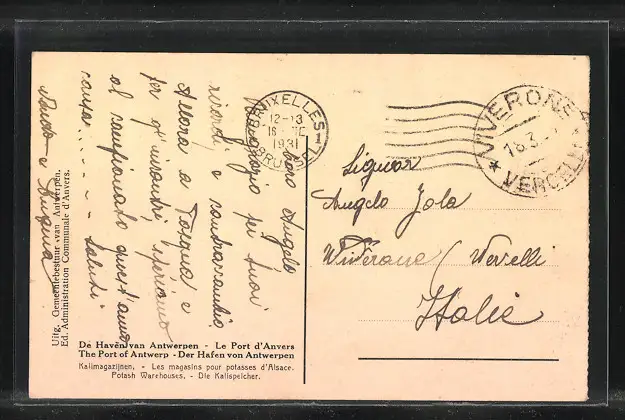 Caro Angelo
Ringrazio per tuoi
ricordi e contraccambio
Allora a Pasqua e
per gl'incontri, speriamo
al campionato quest'anno
causa . . . . . Saluti
BRUXELLES 1
12-13
1931
BRUSSEL
VIVERONE
16.3.
VERCELLI
Signor
Angelo Jola
Viverone (Vercelli
Italie
Uitg. Gemeentebestuur van Antwerpen.
Ed. Administration Communale d'Anvers.
De Haven van Antwerpen - Le Port d'Anvers
The Port of Antwerp - Der Hafen von Antwerpen
Kalimagazijnen. - Les magasins pour potasses d'Alsace.
Potash Warehouses. - Die Kalispeicher.